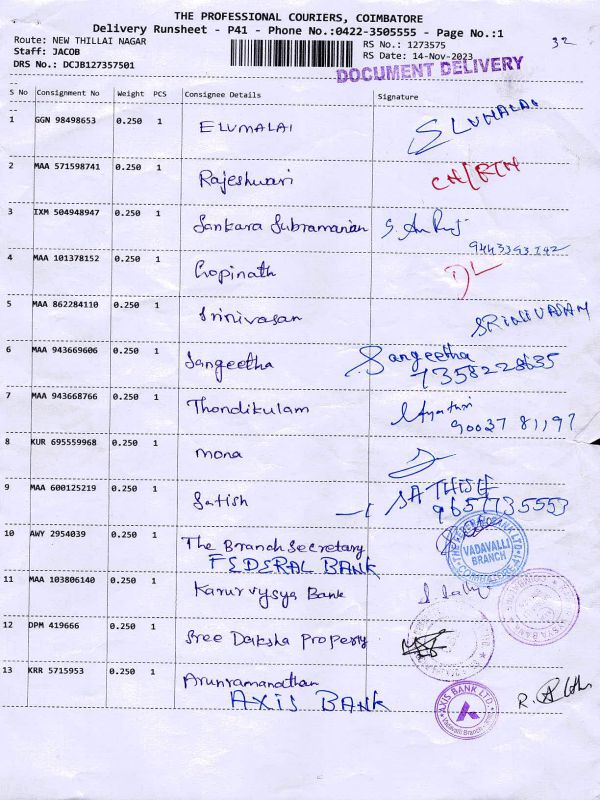 THE PROFESSIONAL COURIERS, COIMBATORE
Delivery Runsheet - P41 - Phone No.:0422-3505555 - Page No.:1
Route: NEW THILLAI NAGAR
RS No.: 1273575
32
Staff: JACOB
RS Date: 14-Nov-2023
DRS No.: DCJB127357501
DOCUMENT DELIVERY
S No Consignment No Weight PCS Consignee Details Signature
1 GGN 98498653 0.250 1 ELUMALAI ELUMALAI
2 MAA 571598741 0.250 1 Rajeshwari
3 IXM 504948947 0.250 1 Sankara Subramanian
4 MAA 101378152 0.250 1 Gopinath
5 MAA 862284110 0.250 1 Srinivasan SRINIVASAN
6 MAA 943669606 0.250 1 Sangeetha Sangeetha
7358228635
7 MAA 943668766 0.250 1 Thondikulam
90037 81197
8 KUR 695559968 0.250 1 Mona
9 MAA 600125219 0.250 1 Satish SATHISH
9657735553
10 AWY 2954039 0.250 1 The Branch Secretary
FEDERAL BANK
VADAVALLI BRANCH
11 MAA 103806140 0.250 1 Karur vysya Bank
12 DPM 419666 0.250 1 Sree Daksha Property
13 KRR 5715953 0.250 1 Arunramanathan
AXIS BANK
AXIS BANK LTD.
Vadavalli Branch